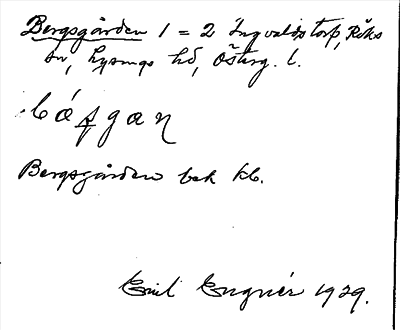 Bergsgården 1 = 2 Ingvaldstorp, Risks
sn, Lysings hd, Österg. l.
Bergsgården bek kb.
Emil Engnér 1929.